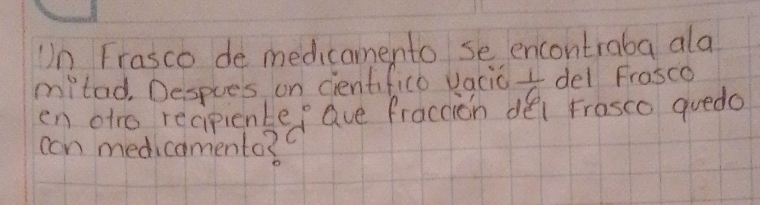 Un Frasco de medicamento se encontraba ala
mitad. Despues un cientifico vació 1/6 del Frasco
en otro recipiente ¿ Que fracción del Frasco quedo
con medicamento?